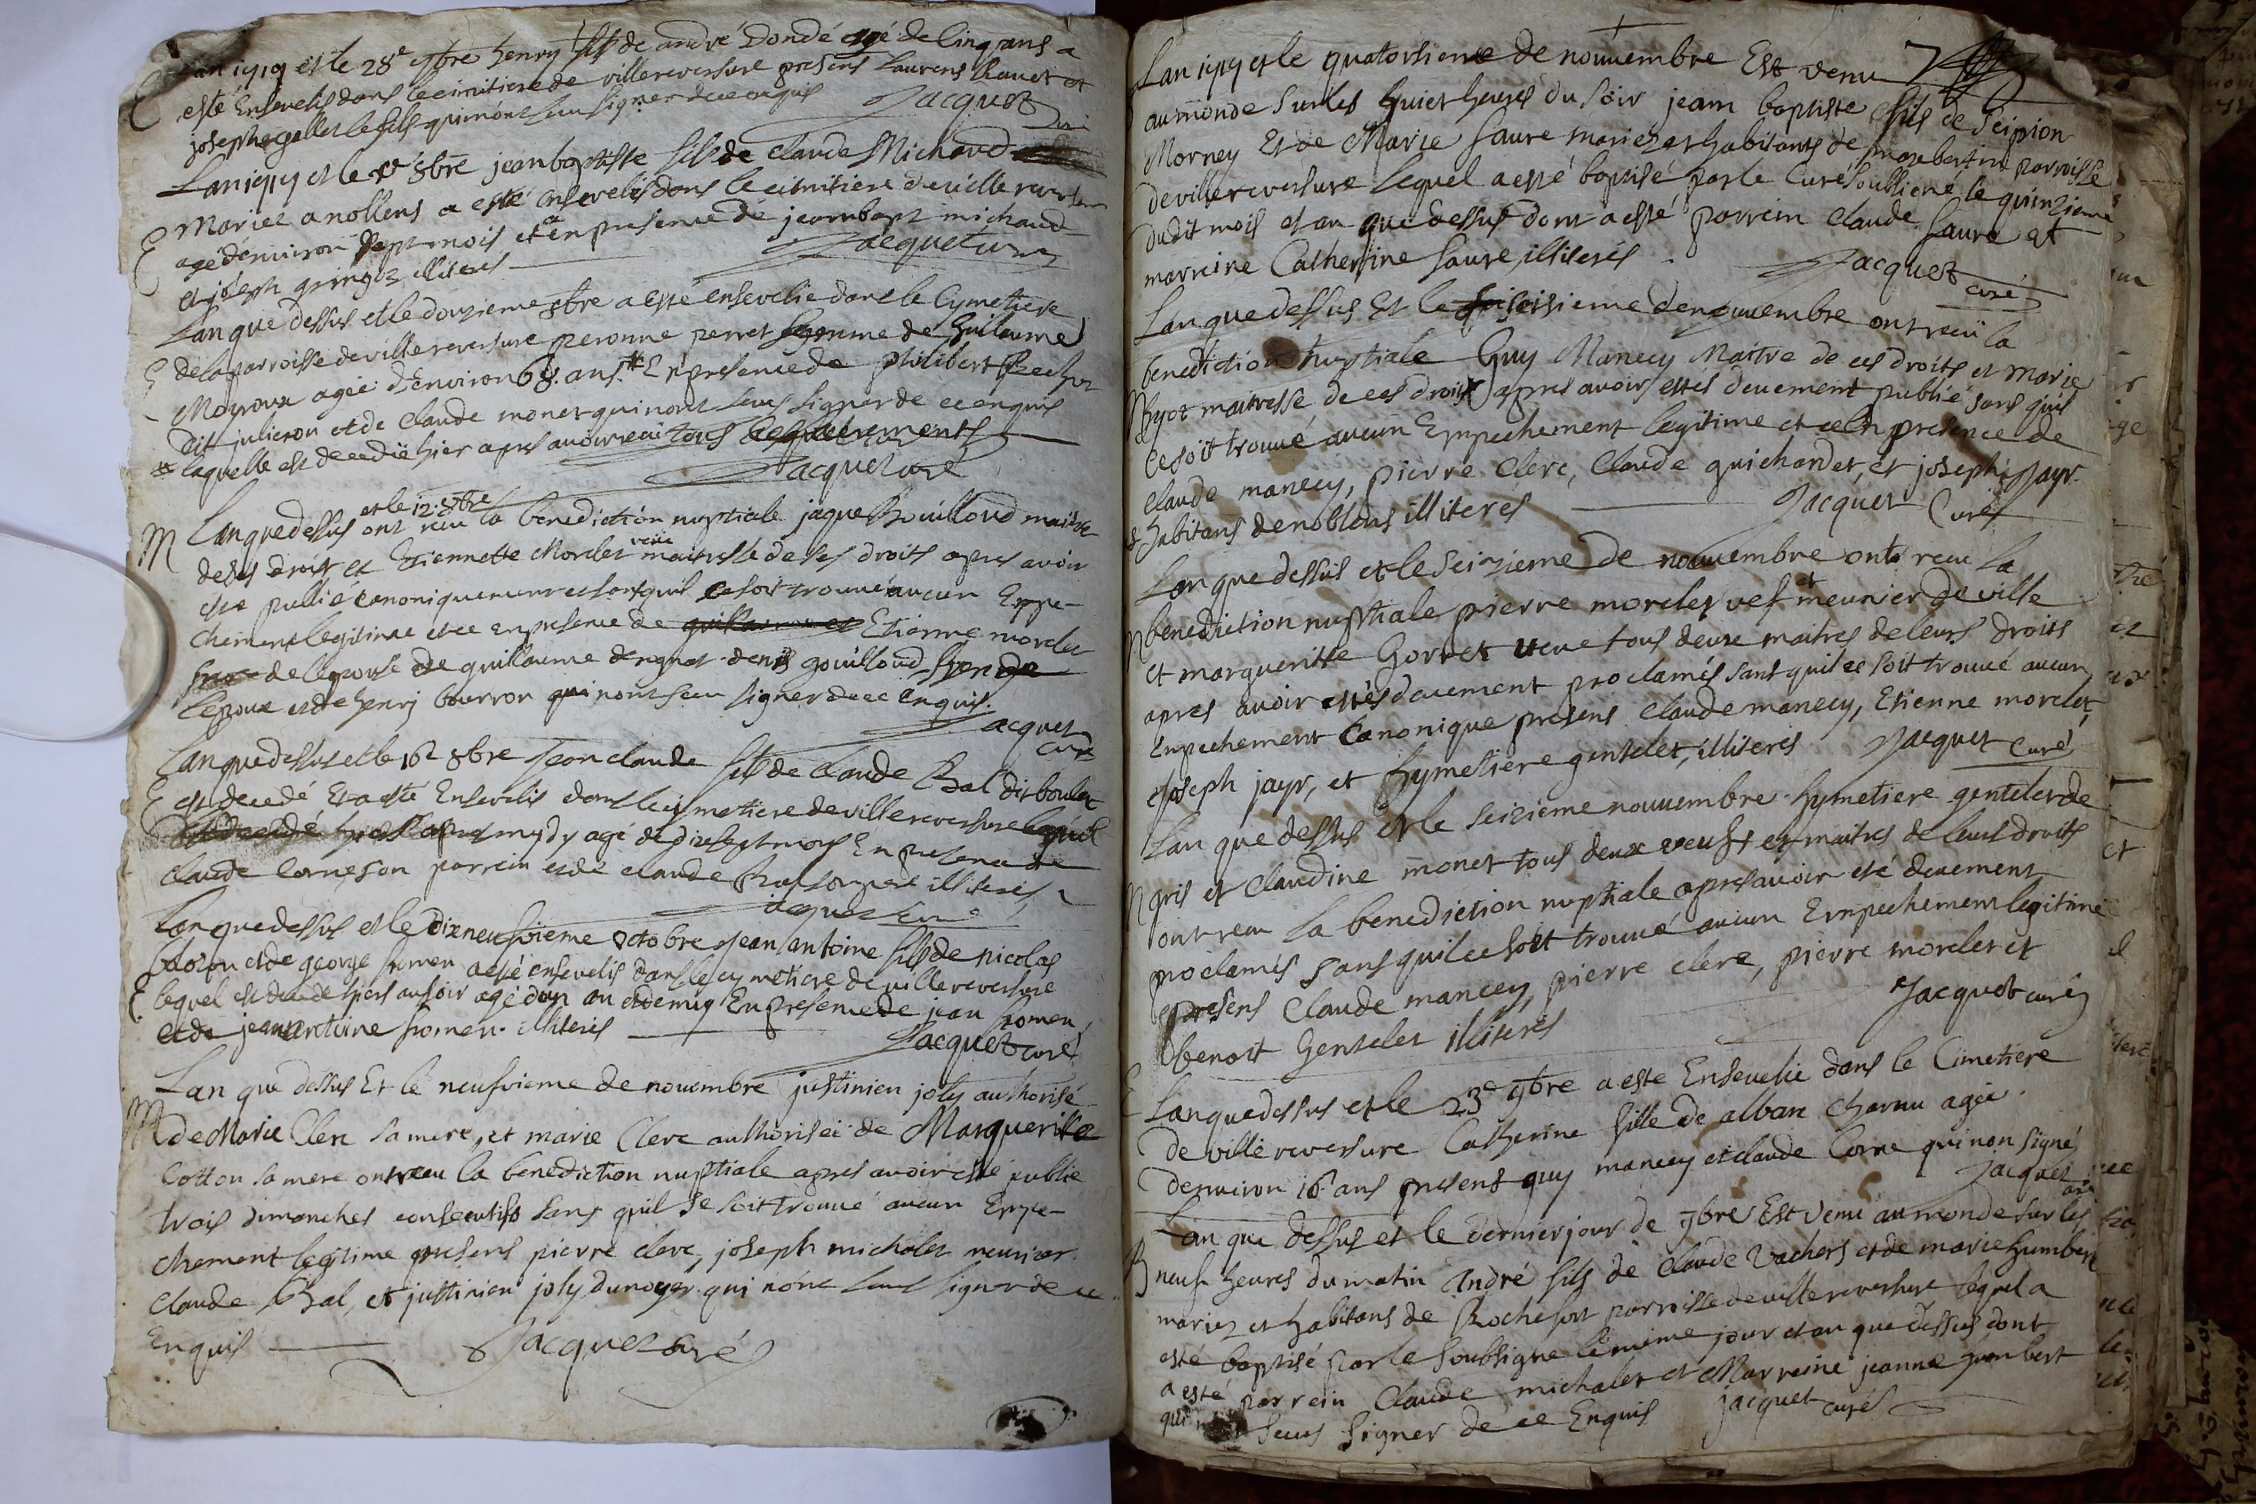 Lan 1719 et le 28e 7bre henry fils de andré Dondé agé de Cinq ans a
E esté Ensevelis dans le cimitiere de villereversure presens Laurens Ravet et
joseph gallet le fils qui nont seu signer de ce enquis Jacquet curé
Lan 1719 et le 8bre jean baptiste fils de claude Michaud
E Mariez a nollens a esté ensevelis dans le cimitiere de villereversure
agé denviron sept mois et en presence de jean bapt michaud
et joseph gringoz illiterés Jacquet curé
Lan que dessus et le douzieme 8bre a esté ensevelie dans le Cymetiere
E de la parroisse de villereversure peronne perret femme de Guillaume
Moyroux agée d'Environ 68. ans # En presence de philibert
dit julieron et de Claude monet qui nont seus signer de ce enquis
# laquelle est decedée hier apres avoir receu tous les sacrements
Jacquet curé
et le 12 8bre
M Lan que dessus ont receu la benediction nuptiale jaque Bouilloud maitre
de ses droits et Etiennette Morelet veuve maitresse de ses droits apres avoir
esté publié canoniquement et sans quil ce soit trouvé aucun Empe-
chement legitime et ce en presence de Etienne morelet
de lepouse de guillaume denis gouilloud
lepoux et de henry bourron qui nont seu signer de ce enquis.
Jacquet curé
Lan que dessus et le 16e 8bre Jean claude fils de claude Bal dit boulet
E est decedé Et a esté Ensevelis dans le cymetiere de villereversure lequel
est decedé hier apres mydy agé de dix sept mois En presence de
claude Corneson parrein et de claude illiterés
Jacquet curé
Lan que dessus et le dixneufvieme octobre Jean antoine fils de nicolas
et de george a esté ensevelis dans le cymetiere de villereversure
E lequel est decedé hiers au soir agé d'un an et demy En presence de jean
et de jean antoine illiterés Jacquet curé
Lan que dessus Et le neufvieme de novembre justinien joly authorisé
M de Marie Clerc sa mere, et marie Clerc authorisée de Margueritte
Cotton sa mere ont receu la benediction nuptiale apres avoir esté publié
trois dimanches consecutifs sans quil se soit trouvé aucun Empe-
chement legitime presens pierre clerc, joseph michalet meunier
Claude Bal, et justinien joly dunoyer qui nont seus signer de ce
Enquis Jacquet curé
Lan 1719 et le quatorsieme de novembre Est venu
au monde sur les huict heures du soir jean baptiste fils de Scipion
Morney Et de Marie faure mariez et habitants de parroisse
de villereversure lequel a esté baptisé par le Curé soubsigné le quinzieme
dudit mois et an que dessus dont a esté parrein claude faure et
marreine Catherine faure illiterés Jacquet curé
Lan que dessus Et le seisieme de novembre ont receu la
benediction nuptiale Guy Manecy Maitre de ces droits et Marie
maitresse de ces droits apres avoir estés deuement publié sans quil
ce soit trouvé aucun Empechement legitime et ce en presence de
claude manecy, pierre Clerc, claude guichardet, et joseph jayr.
habitans de noblens illiterés Jacquet Curé
Lan que dessus et le seizieme de novembre ont receu la
benediction nuptiale pierre morelet vef et meunier de ville
et margueritte Gorret veve tous deux maitres de leurs droits
apres avoir estés deuement proclamés sans quil ce soit trouvé aucun
Empechement Canonique presens claude manecy, Etienne morelet
joseph jayr, et hymetiere gentelet, illiterés Jacquet Curé
Lan que dessus et le seizieme novembre hymetiere gentelet de
gris et Claudine monet tous deux veufs et maitres de leurs droits
ont receu la benediction nuptiale apres avoir eté deuement
proclamés sans quil ce soit trouvé aucun Empechement legitime
presens Claude manecy, pierre clerc, pierre morelet et
benoit Gentelet illiterés Jacquet curé
E Lan que dessus et le 23e 9bre a esté Ensevelie dans le Cimetiere
de villereversure Catherine fille de alban charnu agée
denviron 16 ans presens guy manecy et claude Corne qui non signé
Jacquet curé
Lan que dessus et le dernier jour de 9bre Est venu au monde sur les
B neuf heures du matin André fils de claude Vachers et de marie humbert
mariez et habitans de Rochefort parroisse de villereversure lequel a
esté baptisé par le soubsigné le meme jour et an que dessus dont
a esté parrein Claude michalet et Marreine jeanne humbert
qui seus signer de ce Enquis Jacquet curé